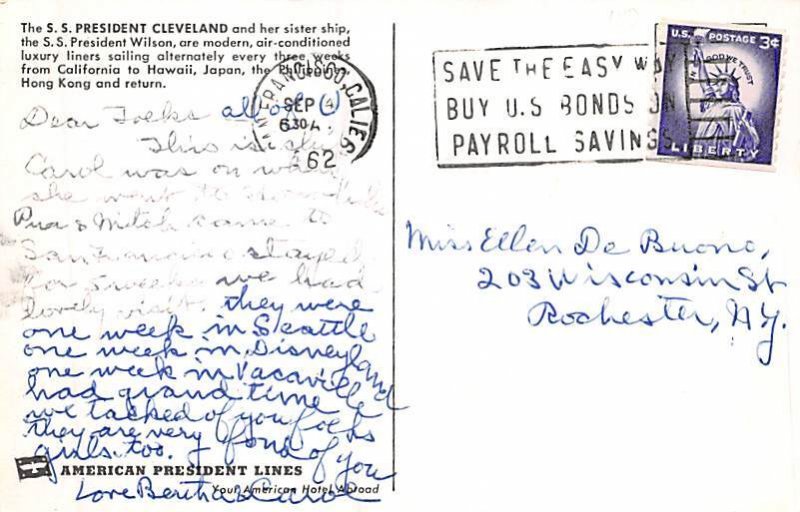 The S. S. PRESIDENT CLEVELAND and her sister ship,
the S.S. President Wilson, are modern, air-conditioned
luxury liners sailing alternately every three weeks
from California to Hawaii, Japan, the Philippines,
Hong Kong and return.
Dear Folks all of U
This is the
Carol was on when
she went to
& Mitch came to
San Francisco stayed
for 5 weeks we had
lovely visit. they were
one week in Seattle
one week in Disneyland
one week in Vacaville
had grand time
we talked of you folks
they are very fond of you
girls too.
Love Bertha & Carol
AMERICAN PRESIDENT LINES
Your American Hotel Abroad
SAN FRANCISCO, CALIF.
SEP 4
630 A
62
SAVE THE EASY WAY
BUY U.S BONDS ON
PAYROLL SAVINGS
U.S. POSTAGE 3¢
IN GOD WE TRUST
LIBERTY
Miss Ellen De Buono,
203 Wisconsin St
Rochester, N.Y.